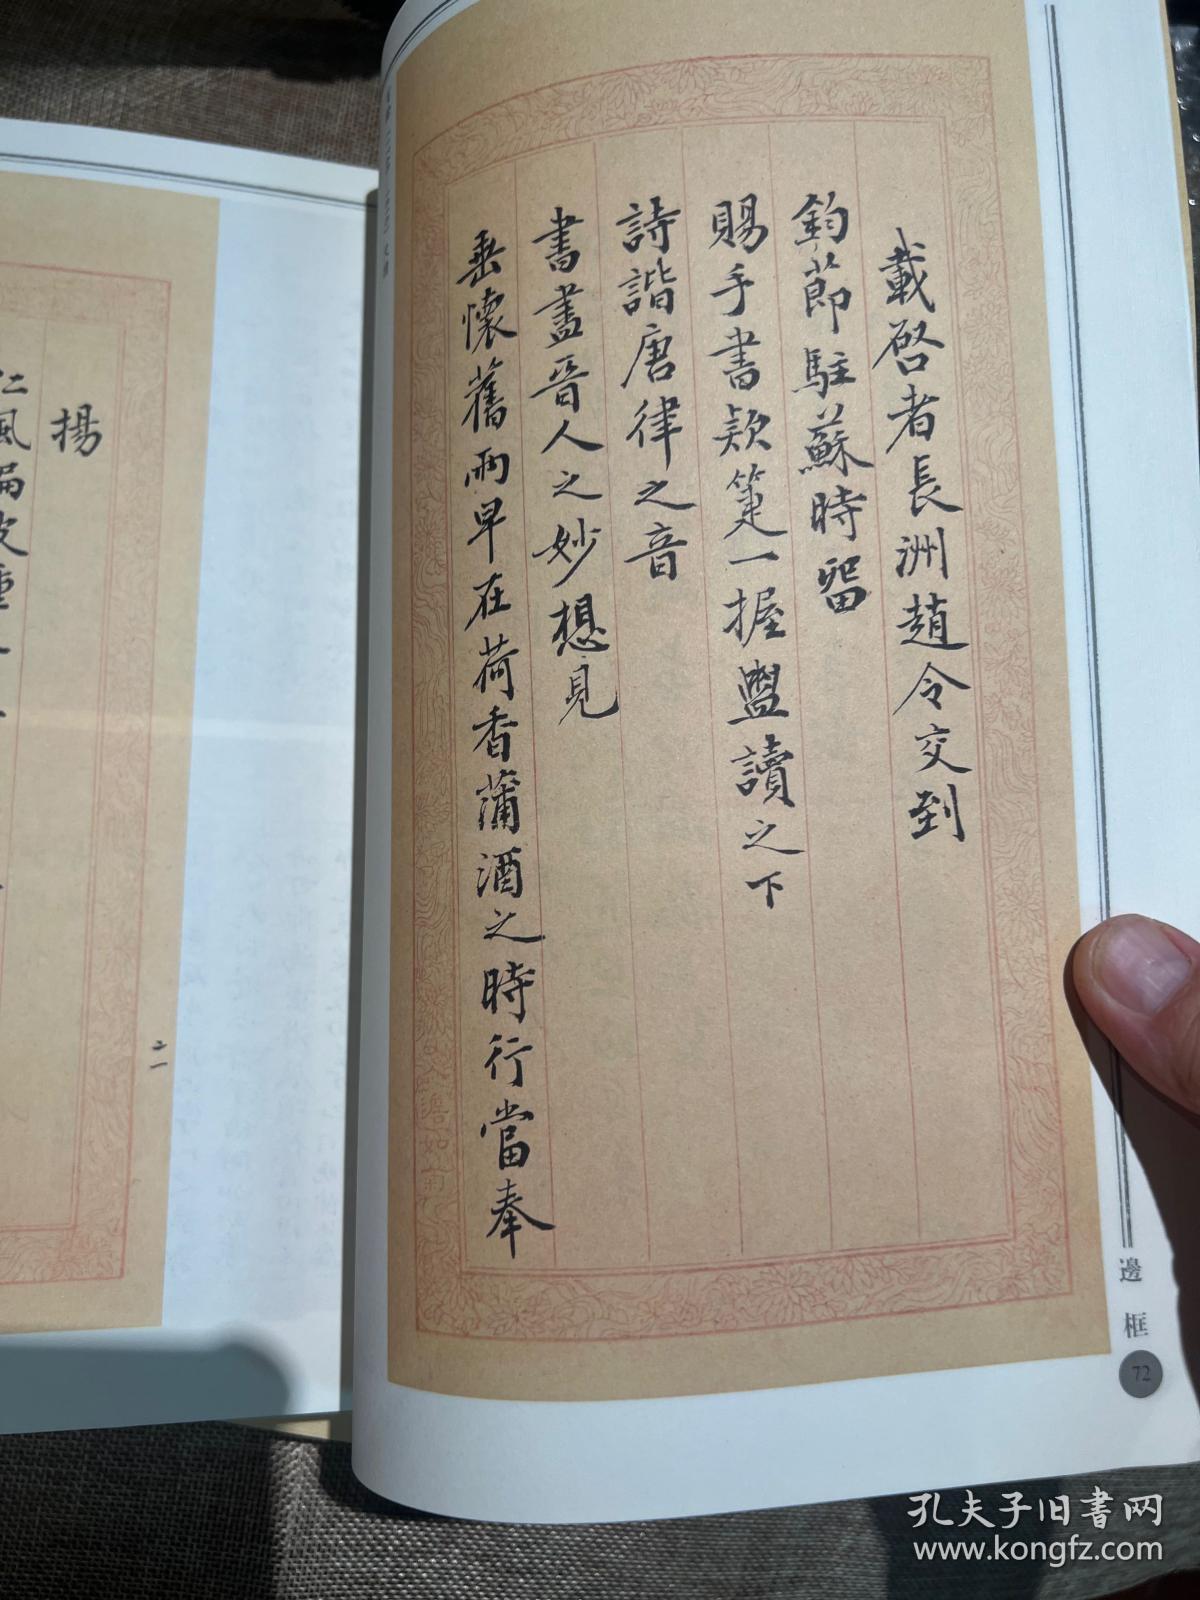 載啓者長洲趙令交到
鈞節駐蘇時留
賜手書款箑一握盥讀之下
詩諧唐律之音
書盡晉人之妙想見
垂懷舊雨早在荷香蒲酒之時行當奉
邊框
72
揚
仁風
孔夫子旧书网
www.kongfz.com